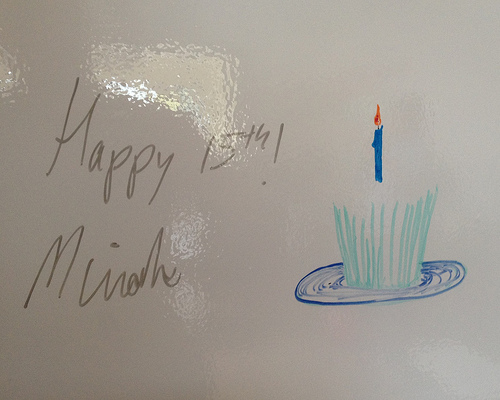 Happy 15th!
Minah